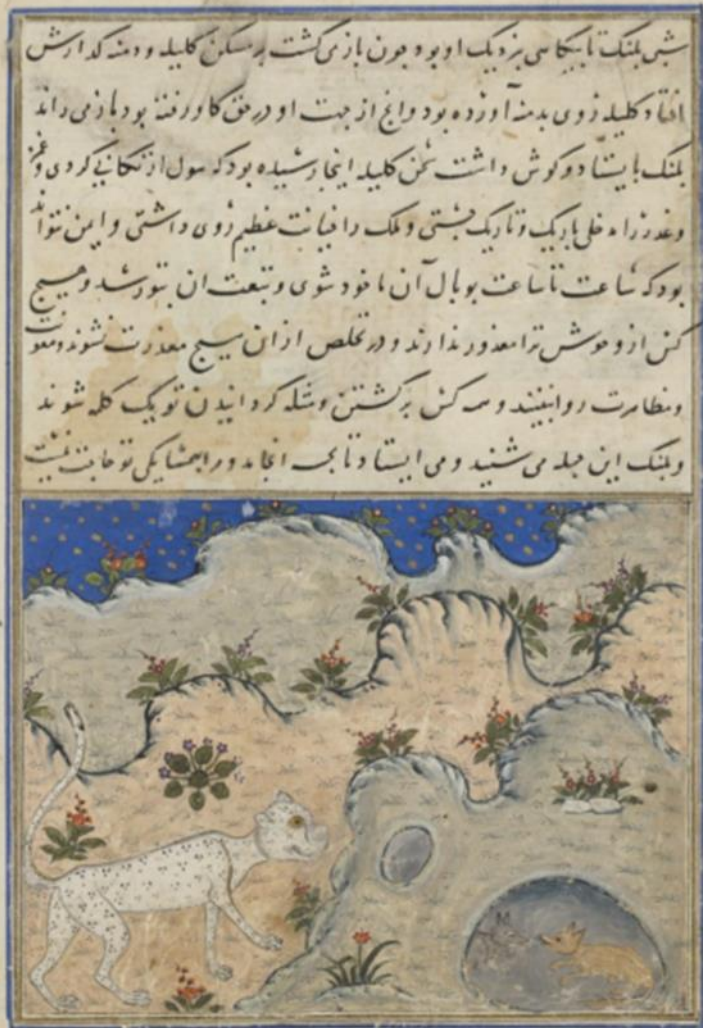 شبی پلنک تا بیکاهی بنزدیک او بود چون باز می کشت بر مسکن کلیله و دمنه کذارش
افتاد کلیله روی بدمنه آورده بود وانچ از جهت او در حق کاو رفته بود باز می راند
پلنک بایستاد و کوش داشت سخن کلیله اینجا رسیده بود که هول ارتکابی کردی و غمز
و غدر را مدخلی باریک و تاریک جستی و ملک را خیانت عظیم روی داشتی و ایمن نتواند
بود که ساعت تا ساعت بوبال آن ماخوذ شوی و تبعت ان بتو رسد و هیچ
کس از وحوش ترا معذور ندارند و در تخلص از ان هیچ معذرت نشنوند و معونت
و مظاهرت روا نبینند و همه کس بر کشتن و مثله کردانیدن تو یک کلمه شوند
و پلنک این جمله می شنید و می ایستاد تا انجامد و مرا بهمسایکی تو حاجت نیست